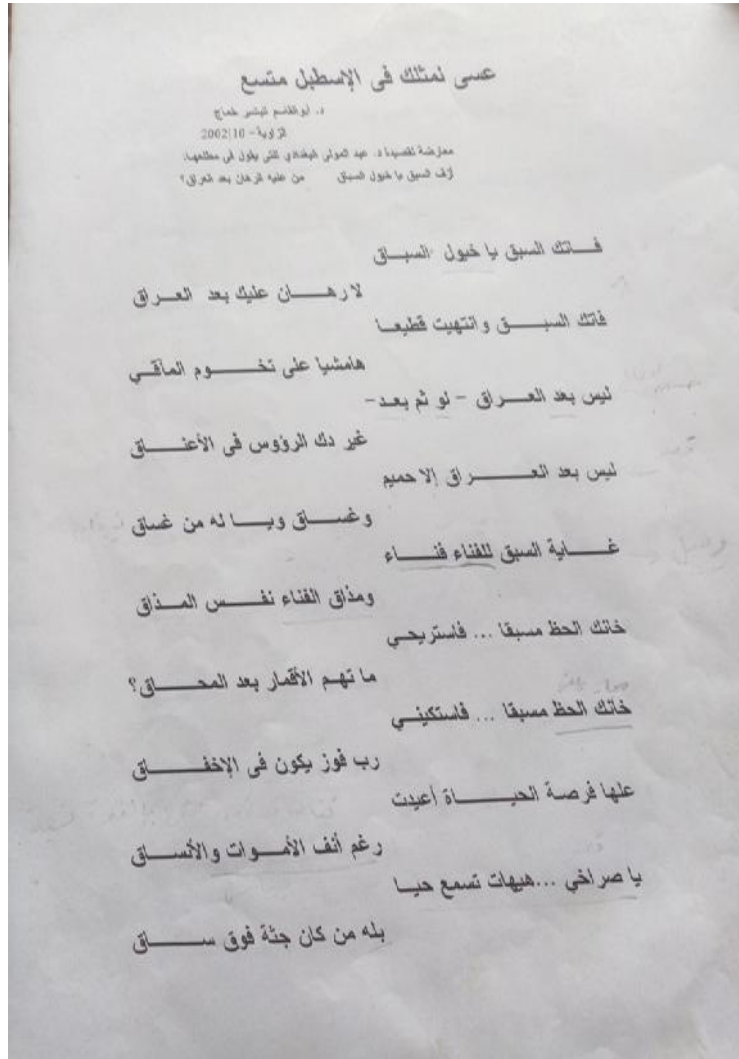 عسى لمثلك فى الإسطبل متسع
د. أبوالقاسم خماج
الزاوية - 10|2002
معارضة لقصيدة د. عبد المولى البغدادي التي يقول فى مطلعها:
أزف السبق يا خيول السباق من عليه الرهان بعد العراق؟
فــاتك السبق يا خيول السبــاق
لا رهـــــان عليك بعد العــراق
فاتك السبــــــق وانتهيت قطيعــا
هامشيا على تخـــــوم المآقــي
ليس بعد العــــراق - لو ثم بعـد-
غير دك الرؤوس فى الأعنـــاق
ليس بعد العــــــــراق إلا حميم
وغســـاق ويــا له من غساق
غـــــاية السبق للفناء فنـــاء
ومذاق الفناء نفـــس المــذاق
خانك الحظ مسبقا ... فاستريحي
ما تهم الأقمار بعد المحــــاق؟
خانك الحظ مسبقا ... فاستكينــي
رب فوز يكون فى الإخفـــــــاق
علها فرصة الحيـــــــاة أعيدت
رغم أنف الأمــوات والأنســاق
يا صراخي ...هيهات تسمع حيــا
بله من كان جثة فوق ســـــــاق